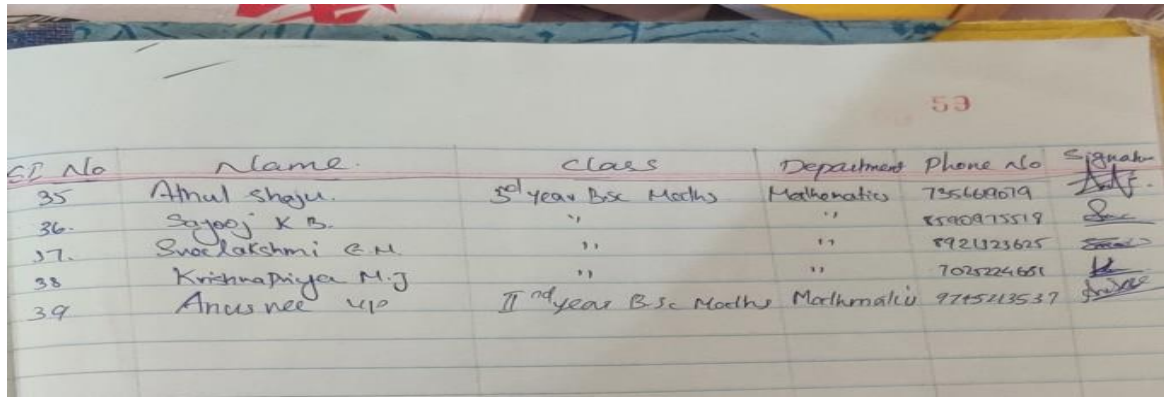 53
Sl No Name. Class Department Phone No Signatur
35 Athul Shaju. 3rd year Bsc Maths Mathematics 735669679
36. Sayooj K B. ,, ,, 8590975519
37. Sreelakshmi C.M. ,, ,, 8921323625
38 Krishnapriya M.J ,, ,, 7025224651
39 Anusree UP II nd year B Sc Maths Mathmatics 9745213537